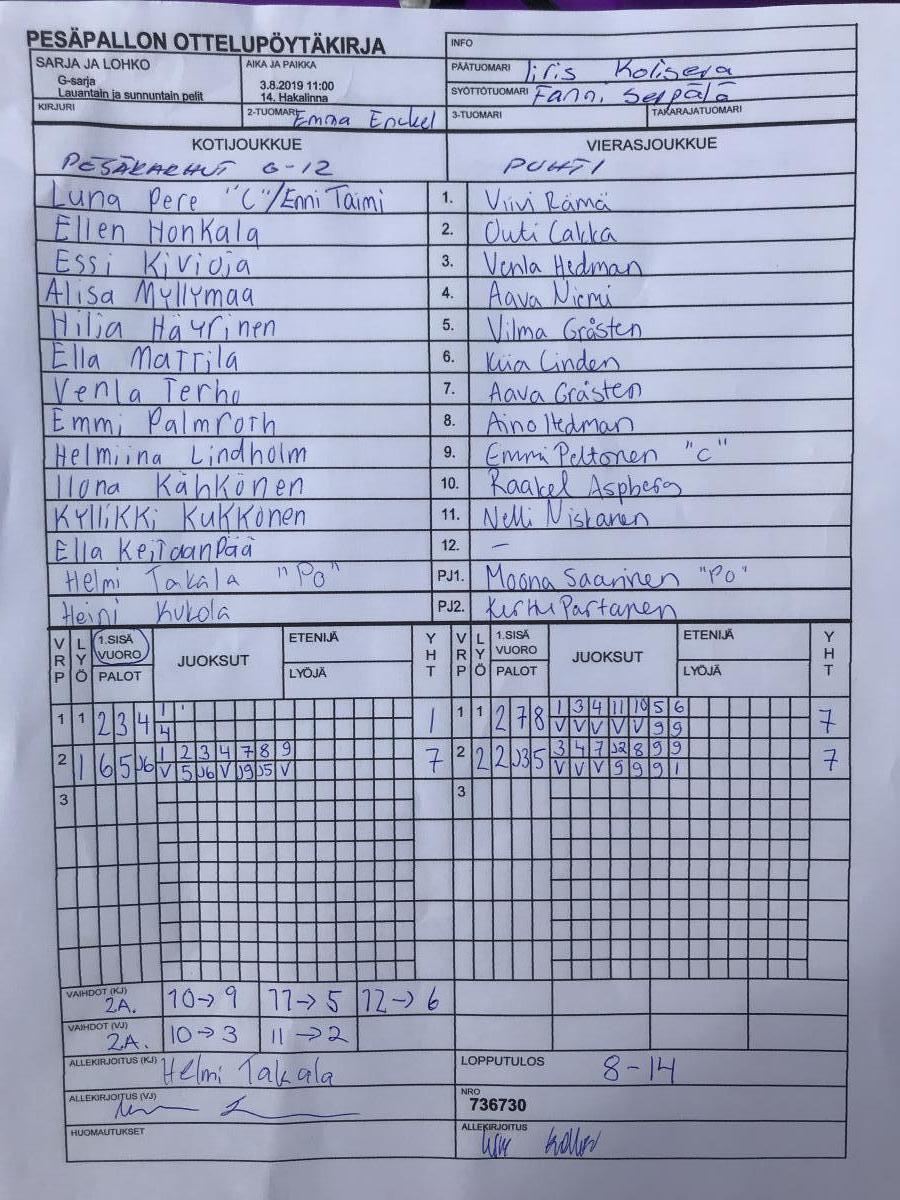 PESÄPALLON OTTELUPÖYTÄKIRJA
INFO
SARJA JA LOHKO
G-sarja
Lauantain ja sunnuntain pelit
AIKA JA PAIKKA
3.8.2019 11:00
14. Hakalinna
PÄÄTUOMARI Iiris Koliseva
SYÖTTÖTUOMARI Fanni Seppälä
KIRJURI
2-TUOMARI Emma Enckel
3-TUOMARI
TAKARAJATUOMARI
KOTIJOUKKUE
PESÄKARHUT G-12
VIERASJOUKKUE
PUHTI
Luna Pere "C"/Enni Taimi 1. Viivi Rämä
Ellen Honkala 2. Outi Lakka
Essi Kivioja 3. Venla Hedman
Alisa Myllymaa 4. Aava Niemi
Hilja Häyrinen 5. Vilma Gråsten
Ella Mattila 6. Kiia Linden
Venla Terho 7. Aava Gråsten
Emmi Palmroth 8. Aino Hedman
Helmiina Lindholm 9. Emmi Peltonen "C"
Ilona Kähkönen 10. Raakel Aspberg
Kyllikki Kukkonen 11. Nelli Niskanen
Ella Keitaanpää 12. –
Helmi Takala "PO" PJ1. Moona Saarinen "PO"
Heini Kukola PJ2. Kerttu Partanen
VRP LYÖ 1.SISÄ VUORO PALOT JUOKSUT ETENIJÄ LYÖJÄ YHT
VRP LYÖ 1.SISÄ VUORO PALOT JUOKSUT ETENIJÄ LYÖJÄ YHT
1 1 2 3 4 1 1
4
1 1 2 7 8 1 3 4 11 10 5 6 7
V V V V V 9 9
2 1 6 5 J6 1 2 3 4 7 8 9 7
V 5 J6 V J9 J5 V
2 2 2 J3 5 3 4 7 J2 8 9 9 7
V V V 9 9 9 1
3
3
VAIHDOT (KJ) 2A. 10→9 11→5 12→6
VAIHDOT (VJ) 2A. 10→3 11→2
ALLEKIRJOITUS (KJ) Helmi Takala
LOPPUTULOS 8-14
ALLEKIRJOITUS (VJ)
NRO
736730
HUOMAUTUKSET
ALLEKIRJOITUS